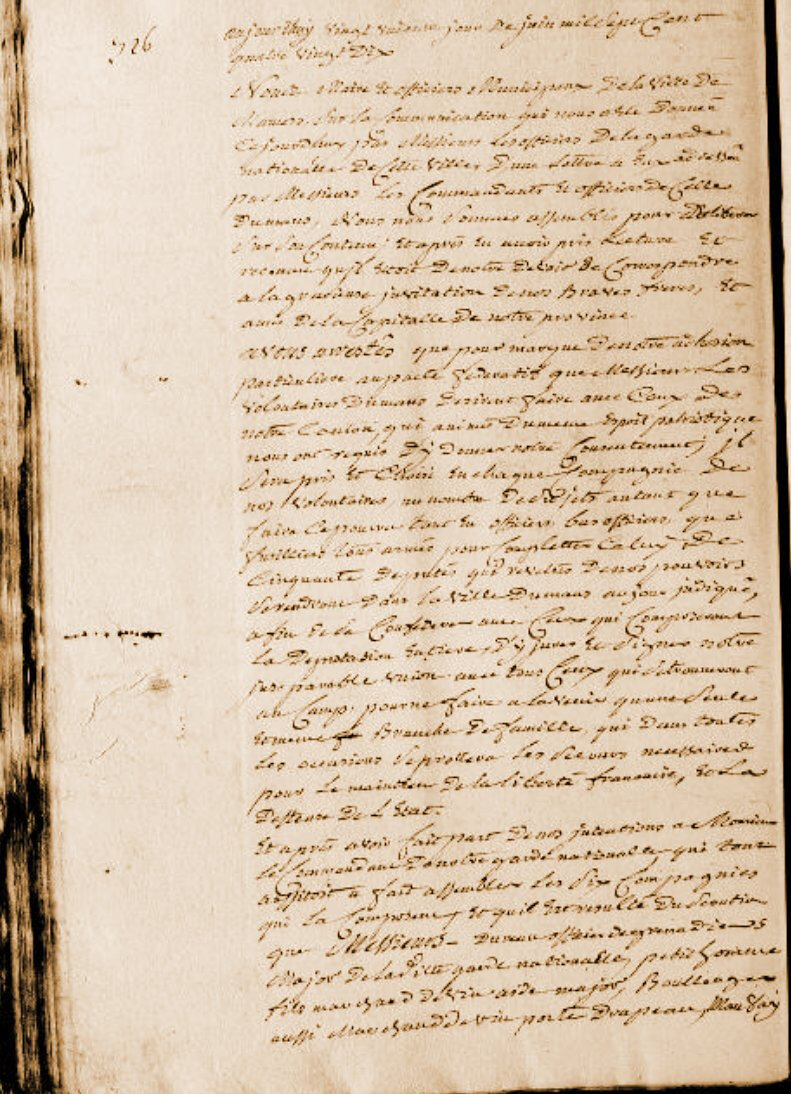 226
aujourdhuy vingt deuxieme jour de juin mil sept Cent
quatre vingt Dix
Nous Maire et officiers Municipaux De la Ville De
Mamers. Sur la Communication qui nous a été Donnée
Cejourdhuy par Messieurs Les officiers De la garde
nationalle De Cette Ville, D'une Lettre a Eux adressée
par Messieurs Les Commandants et officiers De Celle
Dumans, Nous nous sommes assemblés pour Deliberer
Sur Son Contenu; Et après En avoir pris Lecture Et
reconnu qu'il Etoit De notre Devoir De Correspondre
a la gracieuse invitation De nos Braves freres, Et
amis De la Capitalle De notre province
avons arrestés que pour marque De notre adhesion
particuliere au pacte federatif que Messieurs Les
Volontaires Dumans Desirent faire avec Ceux Des
notre Canton, qui animés Dumeme Esprit patriotique
nous ont requis D'y Donner notre Consentement; il
Sera pris Et Choisi En chaque Compagnie De
nos Volontaires un nombre De sujets autant que
faire Ce pourra tant En officiers bas officiers que
fusilliers tous armés pour Completter Celuy De
Cinquante Deputés qui revetus De nos pouvoirs
Serendront Dans la Ville Dumans au jour indiqué,
afin De se Confederer avec Ceux qui Composeront
La Deputation Entiere, D'y jurer Et Signer notre
inseparable union avec tous Ceux qui se trouveront
au Camp. pour ne faire a l'avenir qu'une Seule
Et meme Branche De famille, qui Dans toutes
Les occasions Se prettera Les Secours necessaires
pour Le maintien De la liberté francaise, Et La
Deffense De L'Etat.
Et après avoir fait part De nos intentions a Monsieur
le Commandant De notre garde nationalle qui tout
aussitot a fait assembler Les Six Compagnies
qui La Composent, Et quil Est resulté Du Scrutin
que Messieurs Dureau officier De grenadiers
Major De la Ditte garde nationalle, petithomme
fils marchand De Vin aide major, Boullenger
aussi Marchand De vin porte Drapeau,